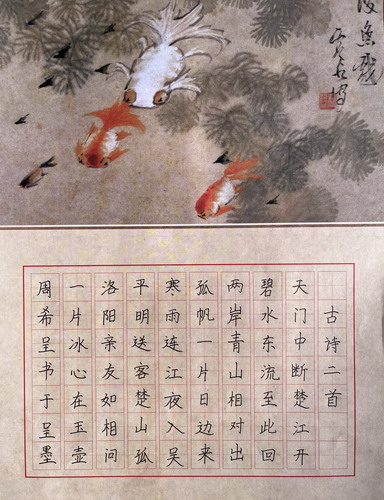 古诗二首
天门中断楚江开
碧水东流至此回
两岸青山相对出
孤帆一片日边来
寒雨连江夜入吴
平明送客楚山孤
洛阳亲友如相问
一片冰心在玉壶
周希呈书于呈墨